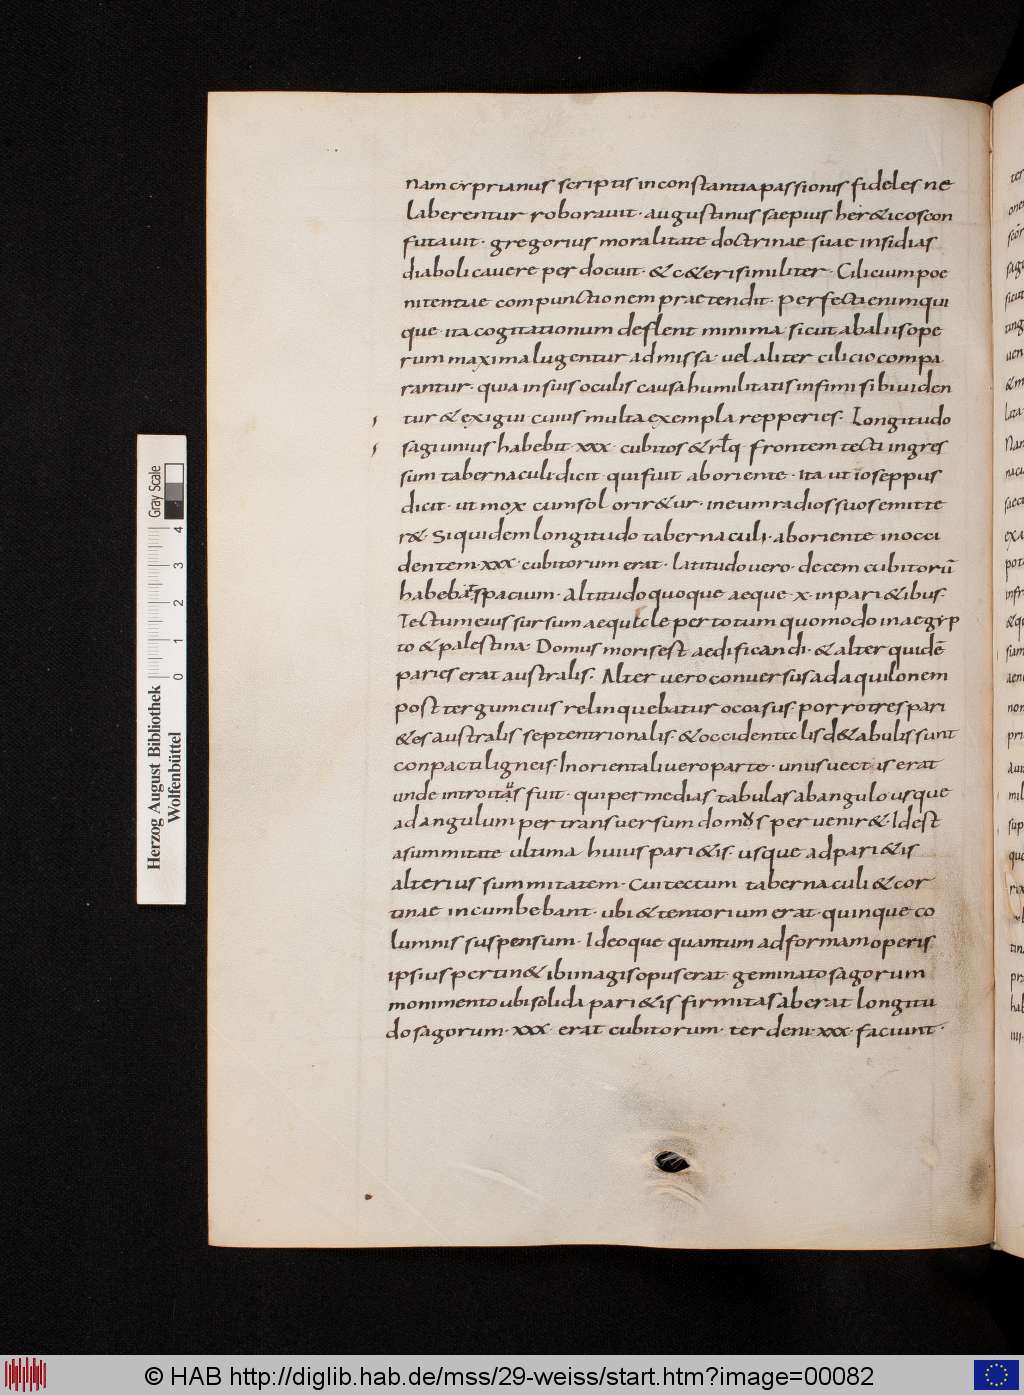 nam cyprianus scriptis in constantia passionis fideles ne
laberentur roborauit · augustinus saepius her&icos con
futauit · gregorius moralitate doctrinae suae insidias
diaboli cauere per docuit · & c&eri similiter · Cilicium poe
nitentiae compunctionem praetendit · perfecti enim qui
que ita cogitationum deflent minima sicut ab aliis ope
rum maxima lugentur admissa · uel aliter cilicio compa
rantur · quia in suis oculis causa humilitatis infimi sibi uiden
tur & exigui cuius multa exempla repperies · Longitudo
sagi unius habebit xxx · cubitos & rłq · frontem tecti ingres
sum tabernaculi dicit qui fuit ab oriente · Ita ut ioseppus
dicit · ut mox cum sol orir&ur · in eum radios suos emitte
r& · Siquidem longitudo tabernaculi · ab oriente in occi
dentem · xxx · cubitorum erat · latitudo uero · decem cubitorū
habebat spacium · Altitudo quoque aeque · x · in pari&ibus ·
Tectum eius sursum aequale per totum quomodo in aegyp
to & palestina · Domus moris est aedificandi · & alter quidē
paries erat australis · Alter uero conuersus ad aquilonem
post tergum eius relinquebatur occasus · porro tres pari
&es australis septentrionalis · & occidentalis d& abulis sunt
conpacti ligneis · In orientali uero parte · unus uectis erat
unde introitus fuit · qui per medias tabulas ab angulo usque
ad angulum per transuersum domus peruenir& · Id est
a summitate ultima huius pari&is · usque ad pari&is
alterius summitatem · Cui tectum tabernaculi & cor
tinae incumbebant · ubi & tentorium erat · quinque co
lumnis suspensum · Ideoque quantum ad formam operis
ipsius pertin& ibi magis opus erat · geminato sagorum
monimento ubi solida pari&is firmitas aberat longitu
do sagorum · xxx · erat cubitorum · ter deni · xxx · faciunt ·
Herzog August Bibliothek
Wolfenbüttel
Gray Scale
0 1 2 3 4
© HAB http://diglib.hab.de/mss/29-weiss/start.htm?image=00082